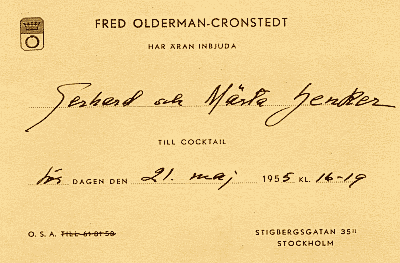 FRED OLDERMAN-CRONSTEDT
HAR ÄRAN INBJUDA
Gerhard och Märta
TILL COCKTAIL
DAGEN DEN 21. maj 1955 KL. 16-19
O. S. A. TILL 61 81 58
STIGBERGSGATAN 35 II
STOCKHOLM